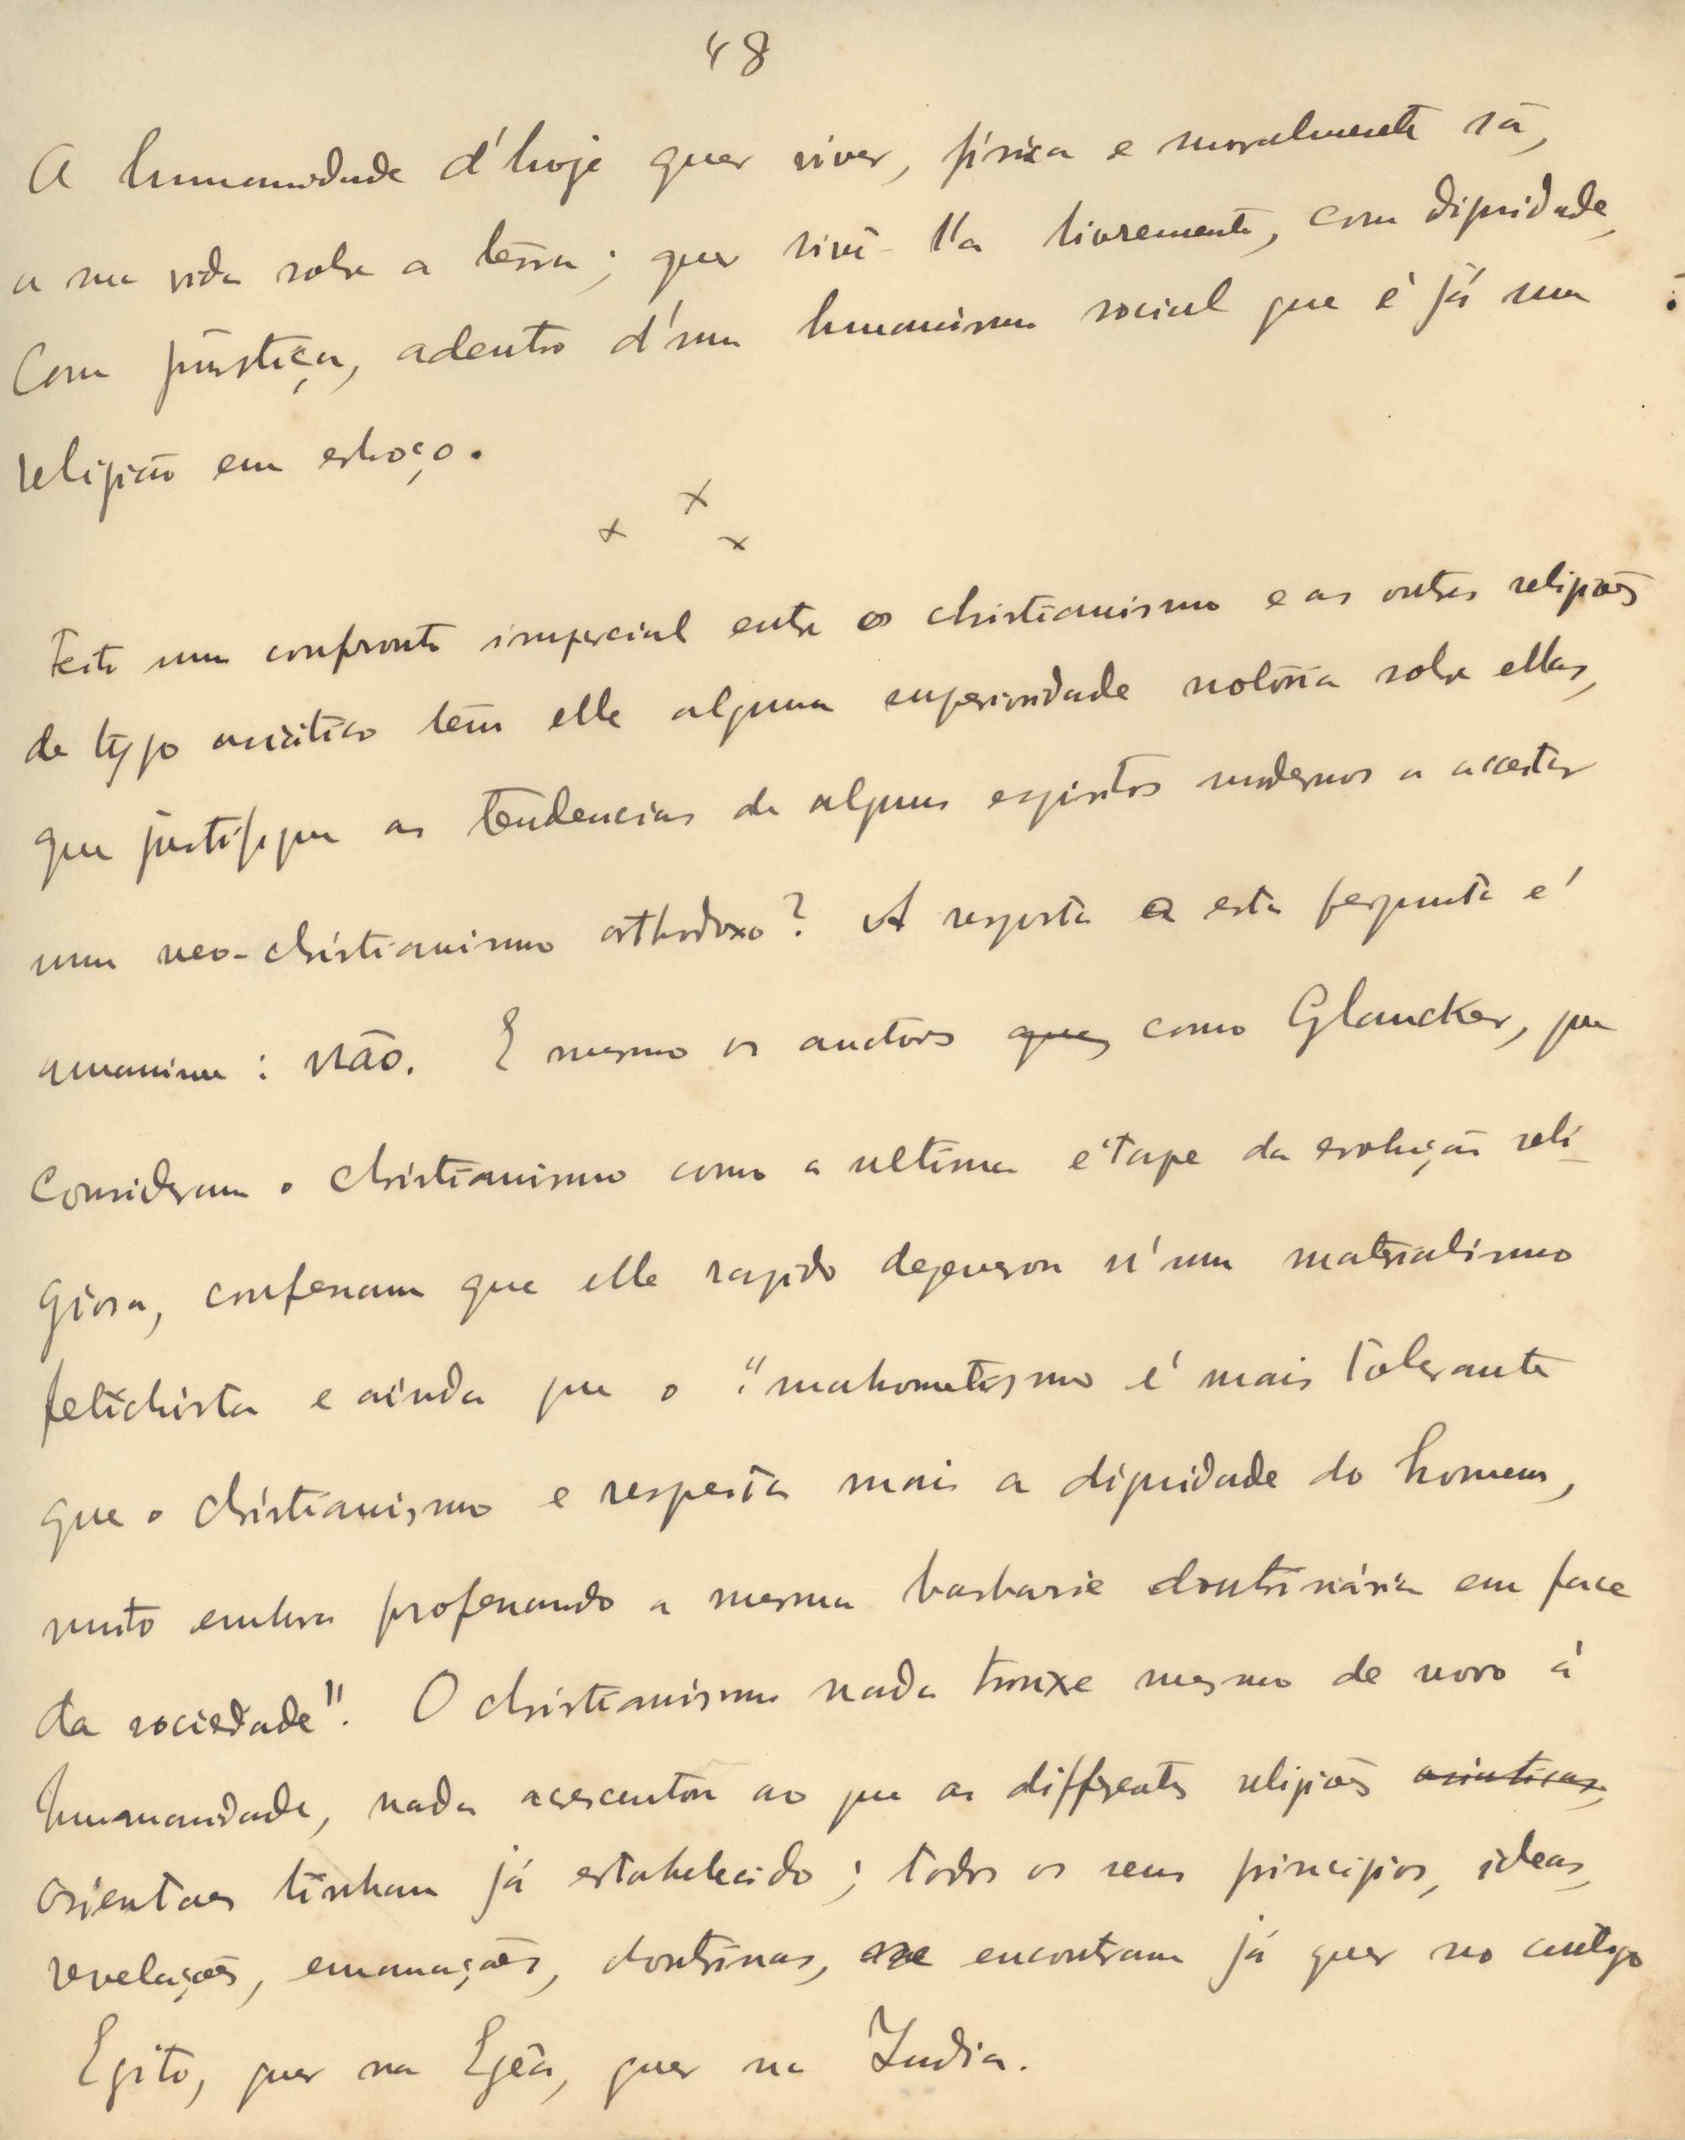 48
A humanidade d'hoje quer viver, física e moralmente sã,
a sua vida sobre a terra; quer vivê-l'a livremente, com dignidade,
com justiça, adentro d'um humanismo social que é já uma
religião em esboço.
x x x
Feito um confronto imparcial entre o christianismo e as outras religiões
de typo asiático têm elle alguma superioridade notória sobre ellas,
que justifique as tendencias de alguns espiritos modernos a acceitar
um neo-christianismo orthodoxo? A resposta a esta pergunta é
unanime: não. E mesmo os auctores que, como Glaucker, que
consideram o christianismo como a ultima étape da evolução reli-
giosa, confessam que elle rapido degenerou n'um materialismo
fetichista e ainda que o "mahometismo é mais tolerante
que o christianismo e respeita mais a dignidade do homem,
muito embora professando a mesma barbarie doutrinária em face
da sociedade". O christianismo nada trouxe mesmo de novo á
humanidade, nada acrescentou ao que as differentes religiões asiaticas,
orientaes tinham já estabelecido; todos os seus principios, ideas,
revelações, emanações, doutrinas, se encontram já quer no antigo
Egito, quer na Egêa, quer na India.